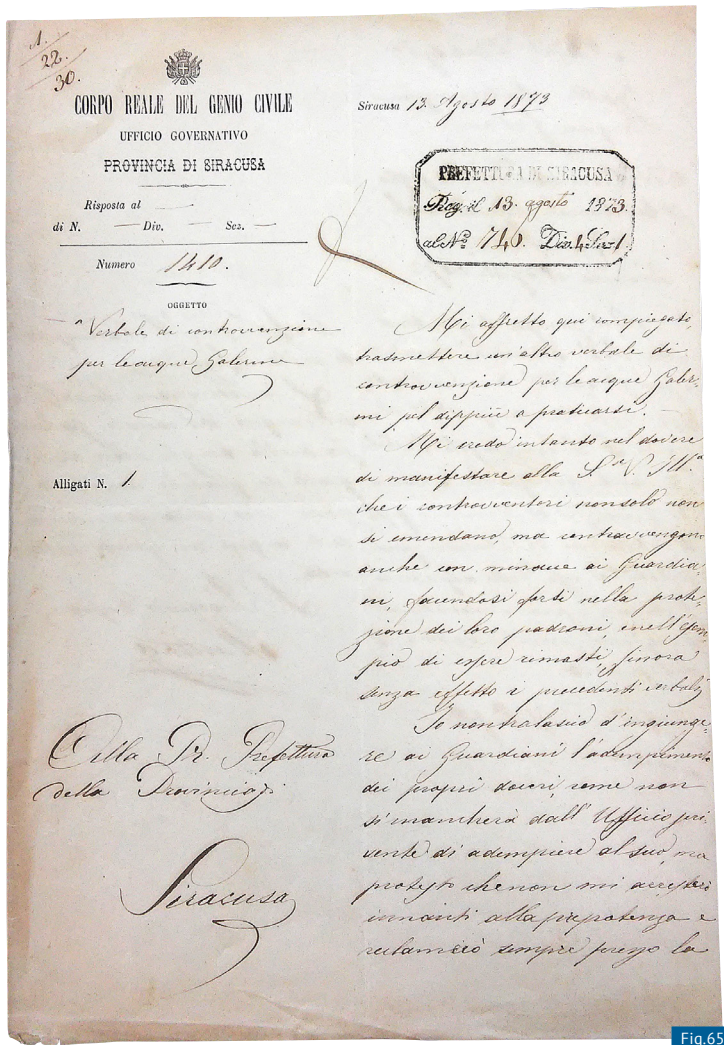 1.
22.
30.
CORPO REALE DEL GENIO CIVILE
UFFICIO GOVERNATIVO
PROVINCIA DI SIRACUSA
Risposta al —
di N. — Div. — Sez. —
Numero 1410.
OGGETTO
Verbale di contravvenzione
per le acque Galermi
Alligati N. 1.
Alla R. Prefettura
della Provincia di
Siracusa
Siracusa 13. Agosto 1873
PREFETTURA DI SIRACUSA
Reg. il 13. agosto 1873.
al No 740. Div. 4 Sez. 1
Mi affretto qui compiegato,
trasmettere un'altro verbale di
contravvenzione per le acque Galer-
mi pel dippiù a praticarsi.
Mi credo intanto nel dovere
di manifestare alla S.a V. Ill.a
che i contravventori non solo non
si emendano, ma contravvengono
anche con minacce ai Guardia-
ni, facendosi forti nella prote-
zione dei loro padroni, e nell'esem-
pio di essere rimasti, finora
senza effetto i precedenti verbali
Io non tralascio d'ingiunge-
re ai Guardiani l'adempimento
dei propri doveri, come non
si mancherà dall'Ufficio scri-
vente di adempiere al suo, ma
protesto che non mi arresterò
innanti alla prepotenza e
reclamerò sempre presso la
Fig.65